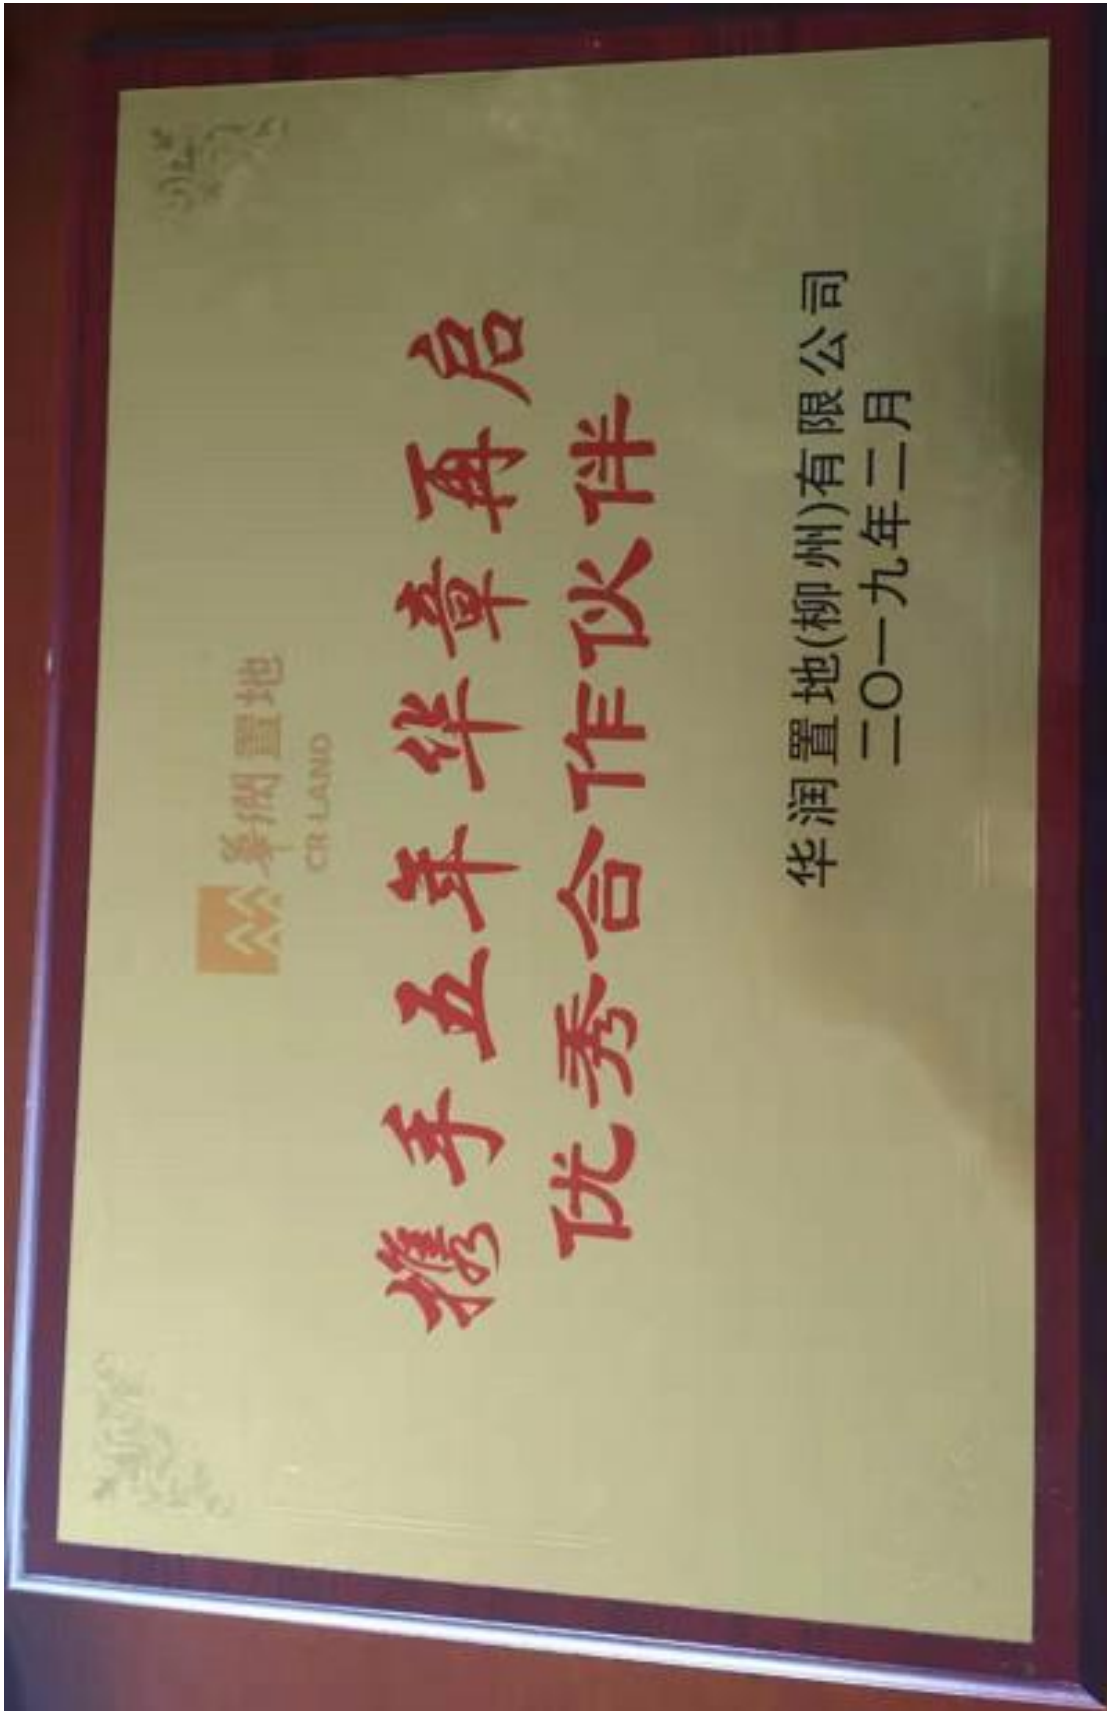 華潤置地
CR LAND
携手五年华章再启
优秀合作伙伴
华润置地(柳州)有限公司
二〇一九年二月